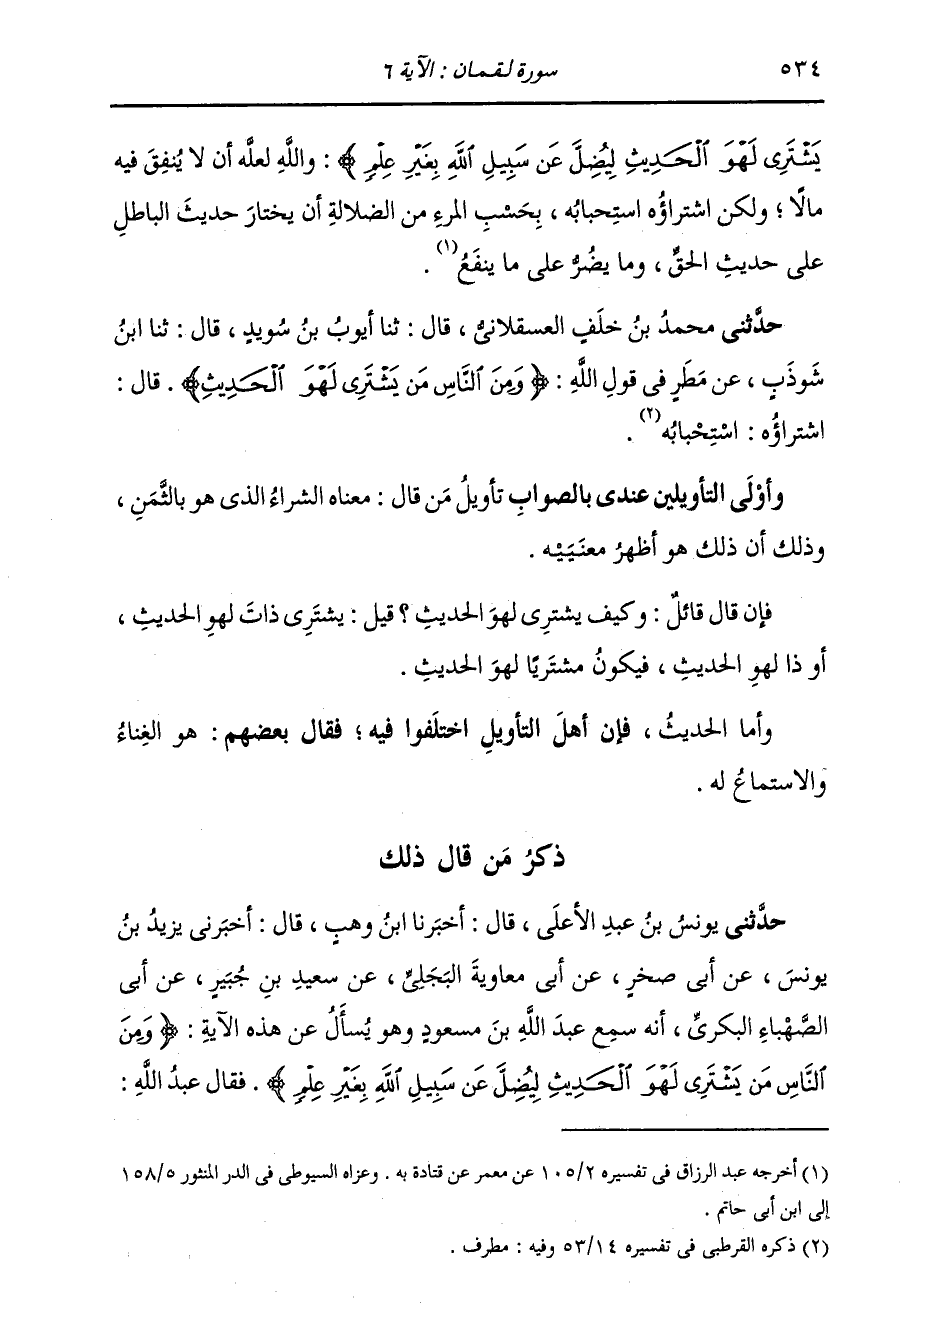 ٥٣٤ سورة لقمان : الآية ٦
يَشْتَرِى لَهْوَ ٱلْحَدِيثِ لِيُضِلَّ عَن سَبِيلِ ٱللَّهِ بِغَيْرِ عِلْمٍ ﴾ : واللَّهِ لعلَّه أن لا يُنفِقَ فيه
مالًا ؛ ولكن اشتراؤُه استِحبابُه ، بِحَسْبِ المرءِ من الضلالةِ أن يختارَ حديثَ الباطلِ
على حديثِ الحقِّ ، وما يضُرُّ على ما ينفَعُ(١) .
حدَّثنى محمدُ بنُ خلَفٍ العسقلانىُّ ، قال : ثنا أيوبُ بنُ سُويدٍ ، قال : ثنا ابنُ
شَوذَبٍ ، عن مَطَرٍ فى قولِ اللَّهِ : ﴿ وَمِنَ ٱلنَّاسِ مَن يَشْتَرِى لَهْوَ ٱلْحَدِيثِ﴾ . قال :
اشتراؤُه : اسْتِحْبابُه(٢) .
وأوْلَى التأويلين عندى بالصوابِ تأويلُ مَن قال : معناه الشراءُ الذى هو بالثَّمَنِ ،
وذلك أن ذلك هو أظهرُ معنَيَيْه .
فإن قال قائلٌ : وكيف يشترِى لهوَ الحديثِ ؟ قيل : يشتَرِى ذاتَ لهوِ الحديثِ ،
أو ذا لهوِ الحديثِ ، فيكونُ مشتَرِيًا لهوَ الحديثِ .
وأما الحديثُ ، فإن أهلَ التأويلِ اختلَفوا فيه ؛ فقال بعضهم : هو الغِناءُ
والاستماعُ له .
ذكرُ مَن قال ذلك
حدَّثنى يونسُ بنُ عبدِ الأعلَى ، قال : أخبَرنا ابنُ وهبٍ ، قال : أخبَرنى يزيدُ بنُ
يونسَ ، عن أبى صخرٍ ، عن أبى معاويةَ البَجَلِىِّ ، عن سعيدِ بنِ جُبَيرٍ ، عن أبى
الصَّهْباءِ البكرىِّ ، أنه سمِع عبدَ اللَّهِ بنَ مسعودٍ وهو يُسأَلُ عن هذه الآيةِ : ﴿ وَمِنَ
ٱلنَّاسِ مَن يَشْتَرِى لَهْوَ ٱلْحَدِيثِ لِيُضِلَّ عَن سَبِيلِ ٱللَّهِ بِغَيْرِ عِلْمٍ ﴾ . فقال عبدُ اللَّهِ :
(١) أخرجه عبد الرزاق فى تفسيره ١٠٥/٢ عن معمر عن قتادة به . وعزاه السيوطى فى الدر المنثور ١٥٨/٥
إلى ابن أبى حاتم .
(٢) ذكره القرطبى فى تفسيره ٥٣/١٤ وفيه : مطرف .